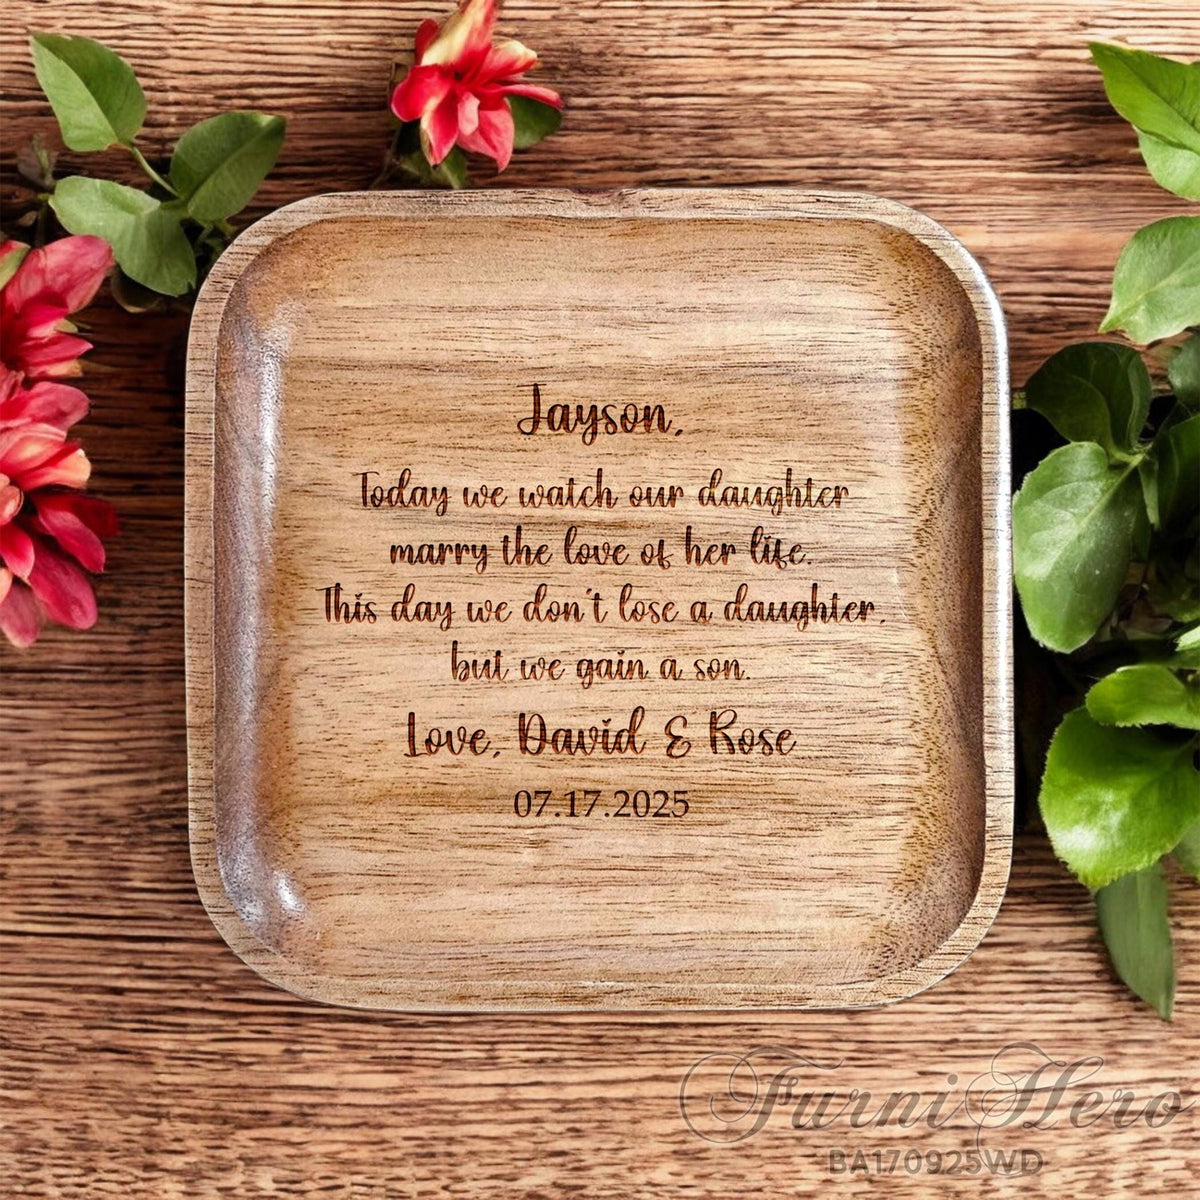 Jayson,
Today we watch our daughter
marry the love of her life.
This day we don't lose a daughter,
but we gain a son.
Love, David & Rose
07.17.2025
FurniHero
BA170925WD